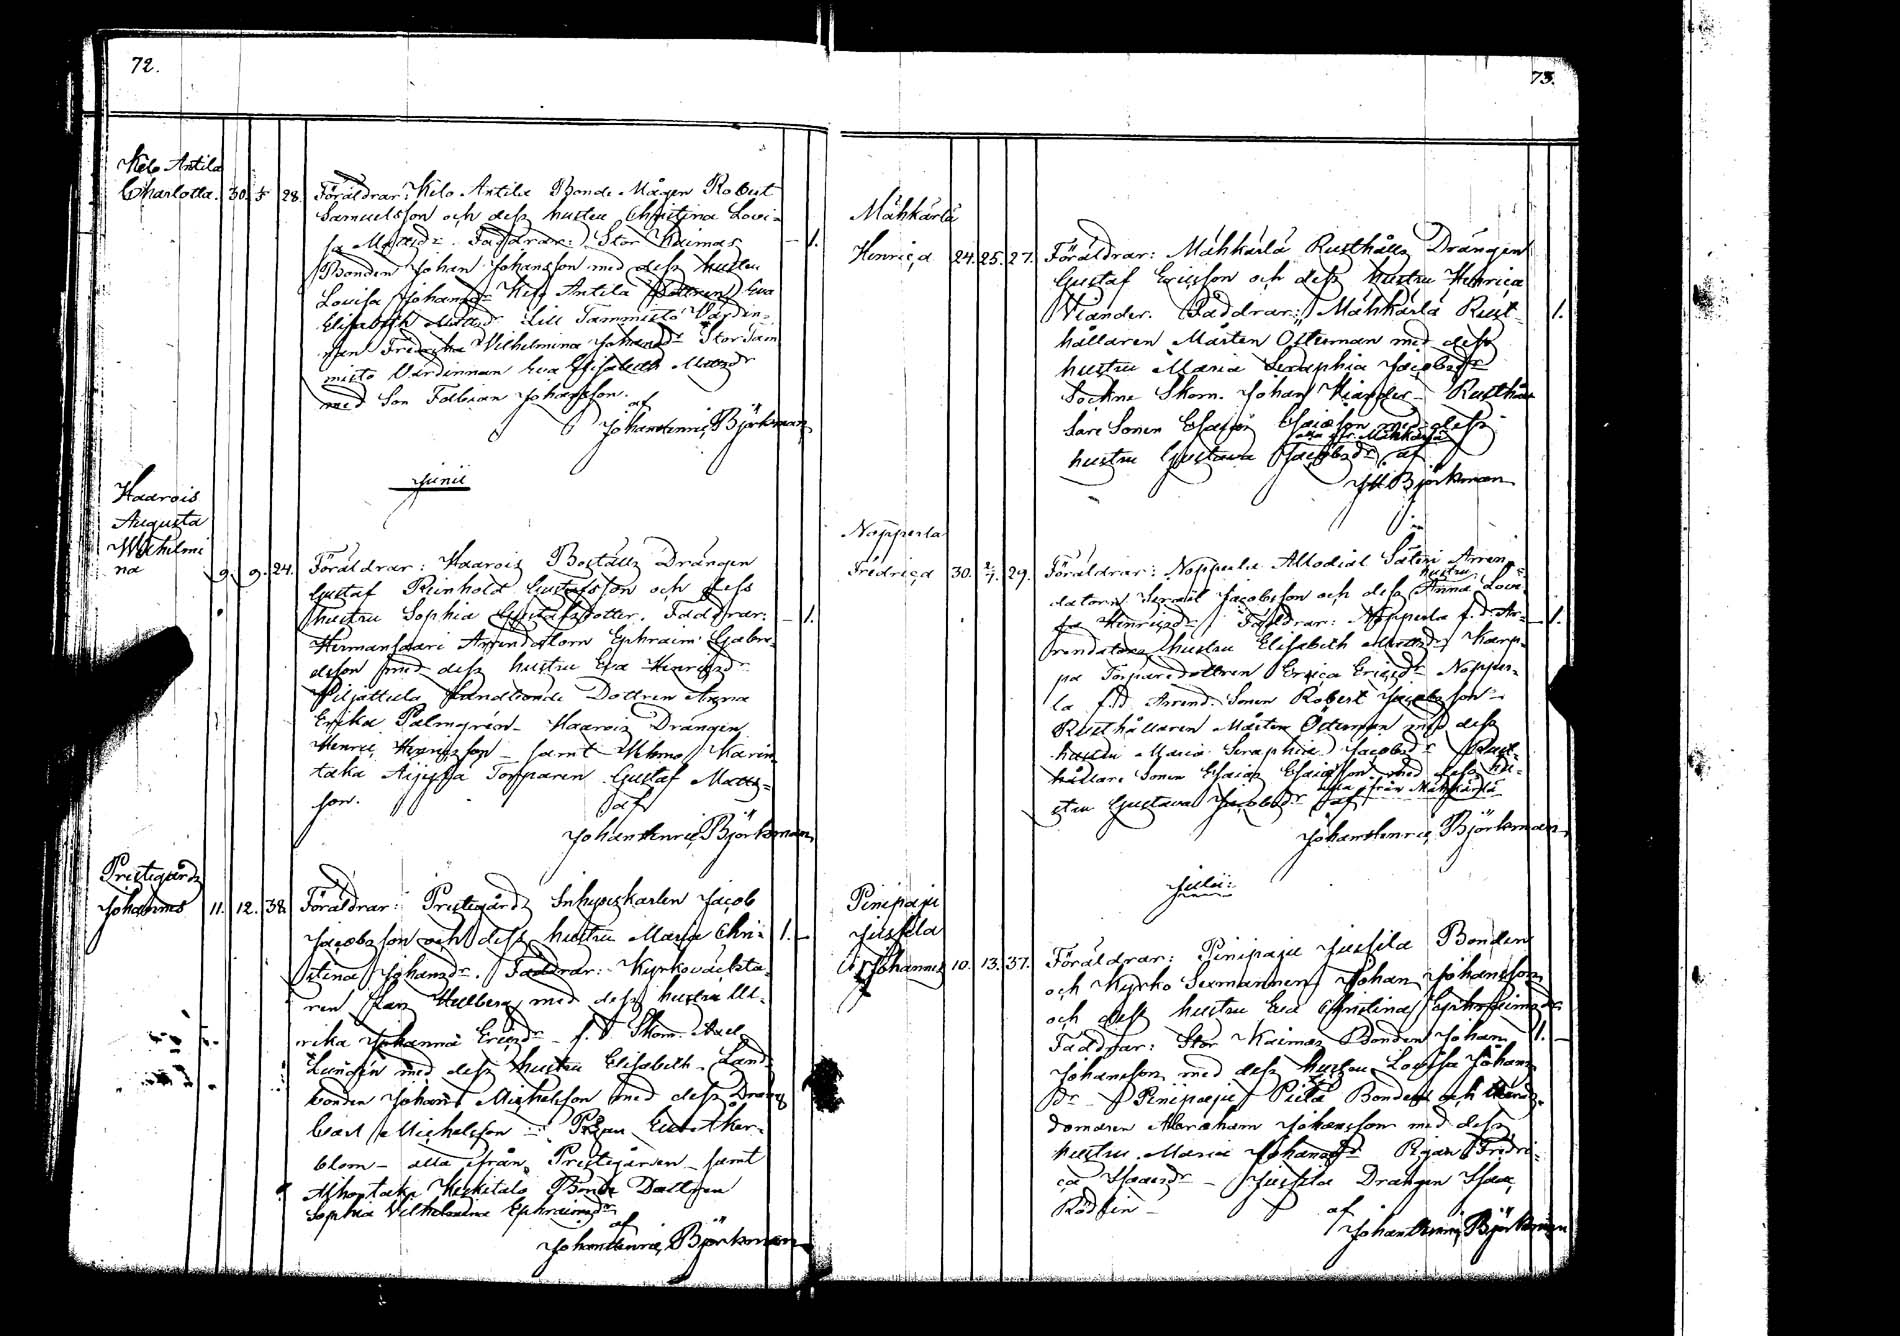 72.
Kilo Antila
Charlotta. 30. 1/5 28. Föräldrar: Kilo Antila Bonde Mågen Robert
Samuelsson och dess hustru Christina Lovi-
sa Matsdr. Faddrar: Stor Kaimas — 1.
Bonden Johan Johansson med dess hustru
Lovisa Johansdr Kilo Antila Dottren Eva
Elisabeth Mattsdr Lill Tammisto Värdin-
nan Fredrika Vilhelmina Johansdr Stor Tam
misto Värdinnan Eva Elisabeth Mattsdr
med Son Fabian Johansson.
af
Johan Henric Björkman
Junii
Haarois
Augusta
Wilhelmi
na 9. 9. 24. Föräldrar: Haarois Boställs Drängen
Gustaf Reinhold Gustafsson och dess
hustru Sophia Gustafsdotter. Faddrar: — 1.
Hermansaari Arrendatorn Ephraim Gabri-
elsson med dess hustru Eva Henricsdr
Viljattula Landbonde Dottren Anna
Erika Palmgrén — Haarois Drängen
Henric Henricsson — samt Vehmo Karin
taka Torparen Gustaf Matts-
son.
af
Johan Henric Björkman
Prestegårds
Johannes 11. 12. 38. Föräldrar: Prestegårds Inhyseskarlen Jacob
Jacobsson och dess hustru Maria Chri- 1. —
stina Johansdr. Faddrar: Kyrkoväckta-
ren Hellberg med dess hustru Ul-
rika Johanna Ericsdr — f. d Skom. Axel
Lundén med dess hustru Elisabeth — Land-
bonden Johan Michelsson med dess Dräng
Carl Michelsson — Pigan Eva Åker-
blom — alla ifrån Prestegården — samt
Keskitalo Bonde Dottren
Sophia Vilhelmina Ephraimsdr
af
Johan Henric Björkman
73.
Mähkärlä
Henrica 24. 25. 27. Föräldrar: Mähkärlä Rusthålls Drängen
Gustaf Ericsson och dess hustru Henrica
Kiander. Faddrar: Mähkärlä Rust- 1.
hållaren Mårten Österman med dess
hustru Maria Seraphia Jacobsdr
Sockne Skom. Johan Kiander — Rusthål
lare Sonen Esaias Esaiasson med dess
hustru Gustava Jacobsdr alla ifr. Mähkärlä af
JH Björkman
Nopperla
Fredrica 30. 2/7. 29. Föräldrar: Nopperla Allodial Säteri Arren-
datorn Israel Jacobsson och dess hustru Anna Lovi-
sa Henricsdr Faddrar: Nopperla f. d. Ar- — 1.
rendators hustru Elisabeth Mattsdr Karp-
pa Torparedottren Erica Ericsdr Nopper-
la f. d. Arrend. Sonen Robert Jacobsson —
Rusthållaren Mårten Österman med dess
hustru Maria Seraphia Jacobsdr Rust-
hållare Sonen Esaias Esaiasson med dess hu-
stru Gustava Jacobsdr alla från Mähkärlä af
Johan Henric Björkman
Julii:
Pinipaju
Jussila
Johannes 10. 13. 37. Föräldrar: Pinipaju Jussila Bonden
och Kyrko Sexmannen Johan Johansson
och dess hustru Eva Christina Ephraimsdr
Faddrar: Stor Kaimas Bonden Johan 1. —
Johansson med dess hustru Lovisa Johans
dr — Pinipaju Bonden och Härads-
domaren Abraham Johansson med dess
hustru Maria Johansdr Pigan Fredri-
ca Isacsdr — Jussila Drängen Isaac
Rödlin —
af
Johan Henric Björkman